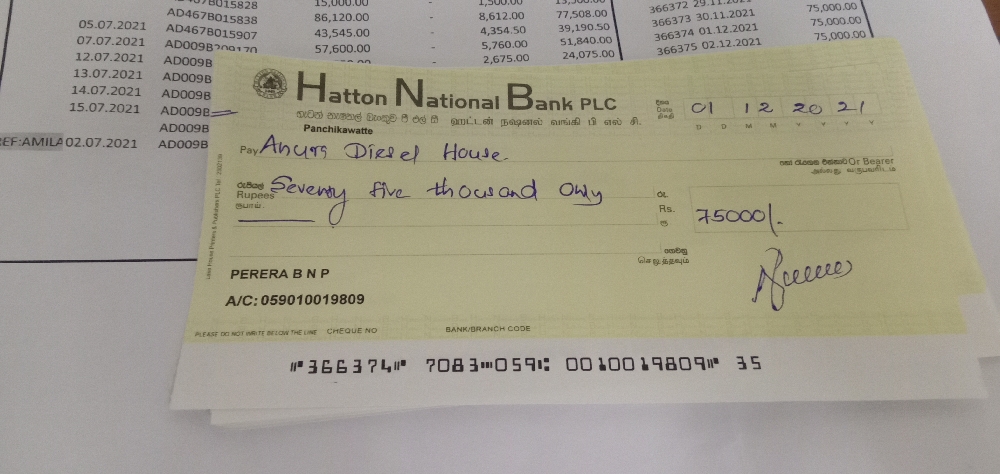 015828 15,000.00 - 1,500.00 366372 29.11.2021 75,000.00
AD467B015838 86,120.00 - 8,612.00 77,508.00 366373 30.11.2021 75,000.00
05.07.2021 AD467B015907 43,545.00 - 4,354.50 39,190.50 366374 01.12.2021 75,000.00
07.07.2021 AD009B209170 57,600.00 - 5,760.00 51,840.00 366375 02.12.2021 75,000.00
12.07.2021 AD009B - 2,675.00 24,075.00
13.07.2021 AD009B
14.07.2021 AD009B
15.07.2021 AD009B
AD009B
REF:AMILA 02.07.2021 AD009B
Hatton National Bank PLC
හැටන් නැෂනල් බැංකුව පී එල් සී ஹட்டன் நஷனல் வங்கி பி எல் சி.
Panchikawatte
දිනය
Date
திகதி
01 12 2021
D D M M Y Y Y Y
Pay Anura Diesel House
හෝ රැගෙන එන්නාට Or Bearer
அல்லது வருபவரிடம்
රුපියල්
Rupees
ரூபாய்
Seventy five thousand Only
රු.
Rs.
ரூ
75000/-
ගෙවනු
செலுத்தவும்
PERERA B N P
A/C: 059010019809
PLEASE DO NOT WRITE BELOW THE LINE CHEQUE NO BANK/BRANCH CODE
⑈366374⑈ 7083⑉059⑆ 0010019809⑈ 35